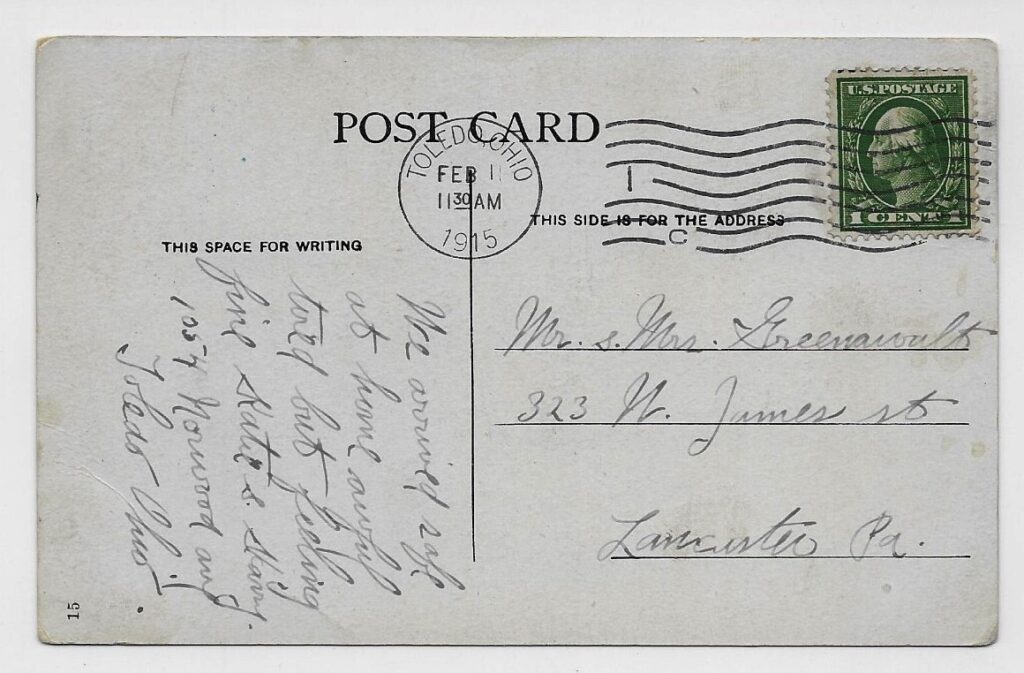 POST CARD
TOLEDO, OHIO
FEB 11
11 30 AM
1915
1
C
U.S. POSTAGE
1 CENT 1
THIS SPACE FOR WRITING
THIS SIDE IS FOR THE ADDRESS
We arrived safe
at home awful
tired but feeling
fine Kate &
1054 Norwood
Toledo Ohio.
Mr. & Mrs. Greenawalt
323 W. James st
Lancaster Pa.
15